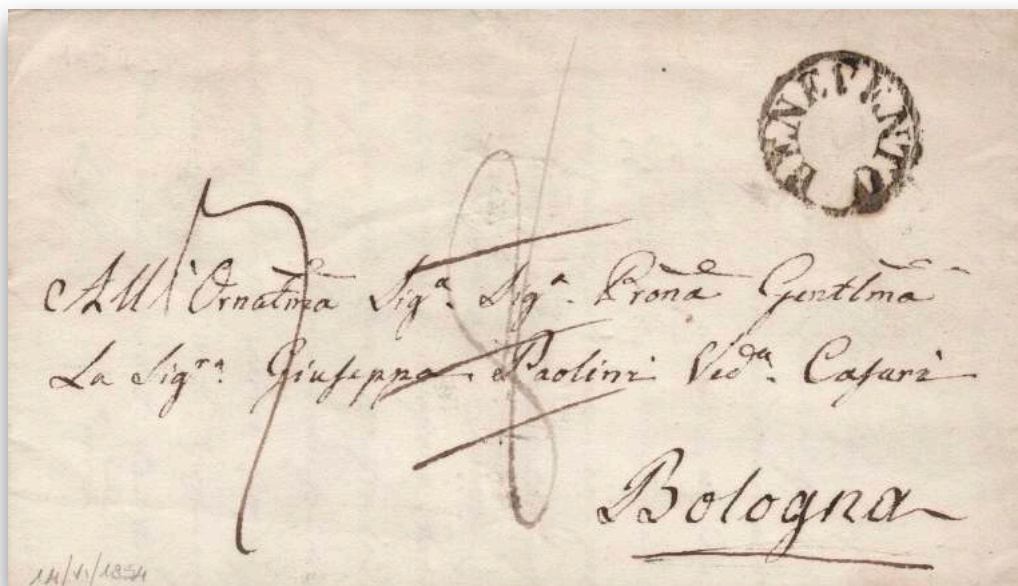 BENEVENTO
7 8
All' Ornatma Sigª. Sigª. Prona Gentlma
La Sigra. Giuseppa Paolini Vedª. Casari
Bologna